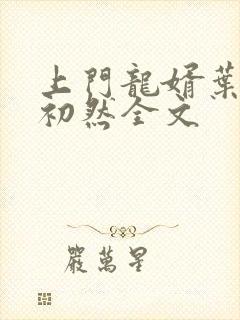 上門龍婿葉
初然全文
嚴萬星